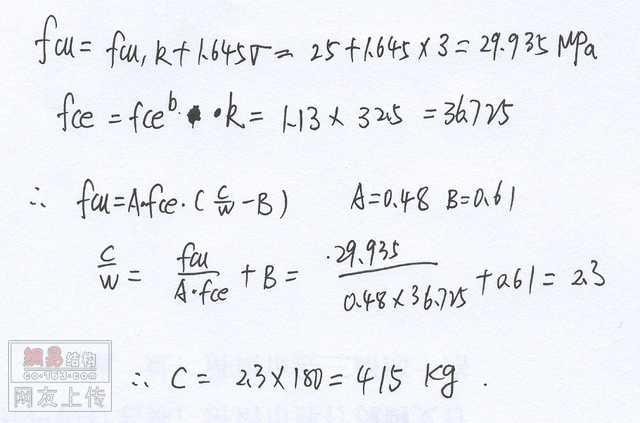 fcu = fcu,k + 1.645σ = 25 + 1.645 × 3 = 29.935 MPa
fce = fce^b · k = 1.13 × 32.5 = 36.725
∴ fcu = A·fce·(C/W − B) A = 0.48 B = 0.61
C/W = fcu/(A·fce) + B = 29.935/(0.48 × 36.725) + 0.61 = 2.3
∴ C = 2.3 × 180 = 415 kg .
網易结构
co.163.com
网友上传